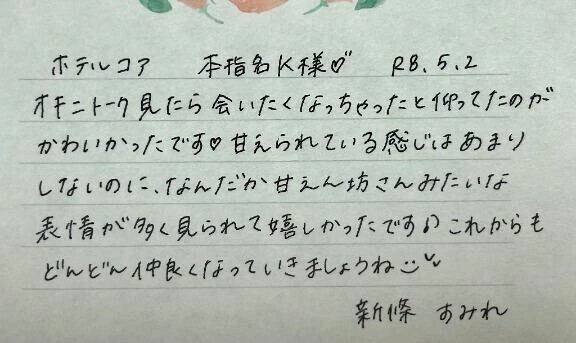 ホテルコア 本指名K様♡ R8.5.2
オキニトーク見たら会いたくなっちゃったと仰ってたのが
かわいかったです♡甘えられている感じはあまり
しないのに、なんだか甘えん坊さんみたいな
表情が多く見られて嬉しかったです♪これからも
どんどん仲良くなっていきましょうね
新條 すみれ